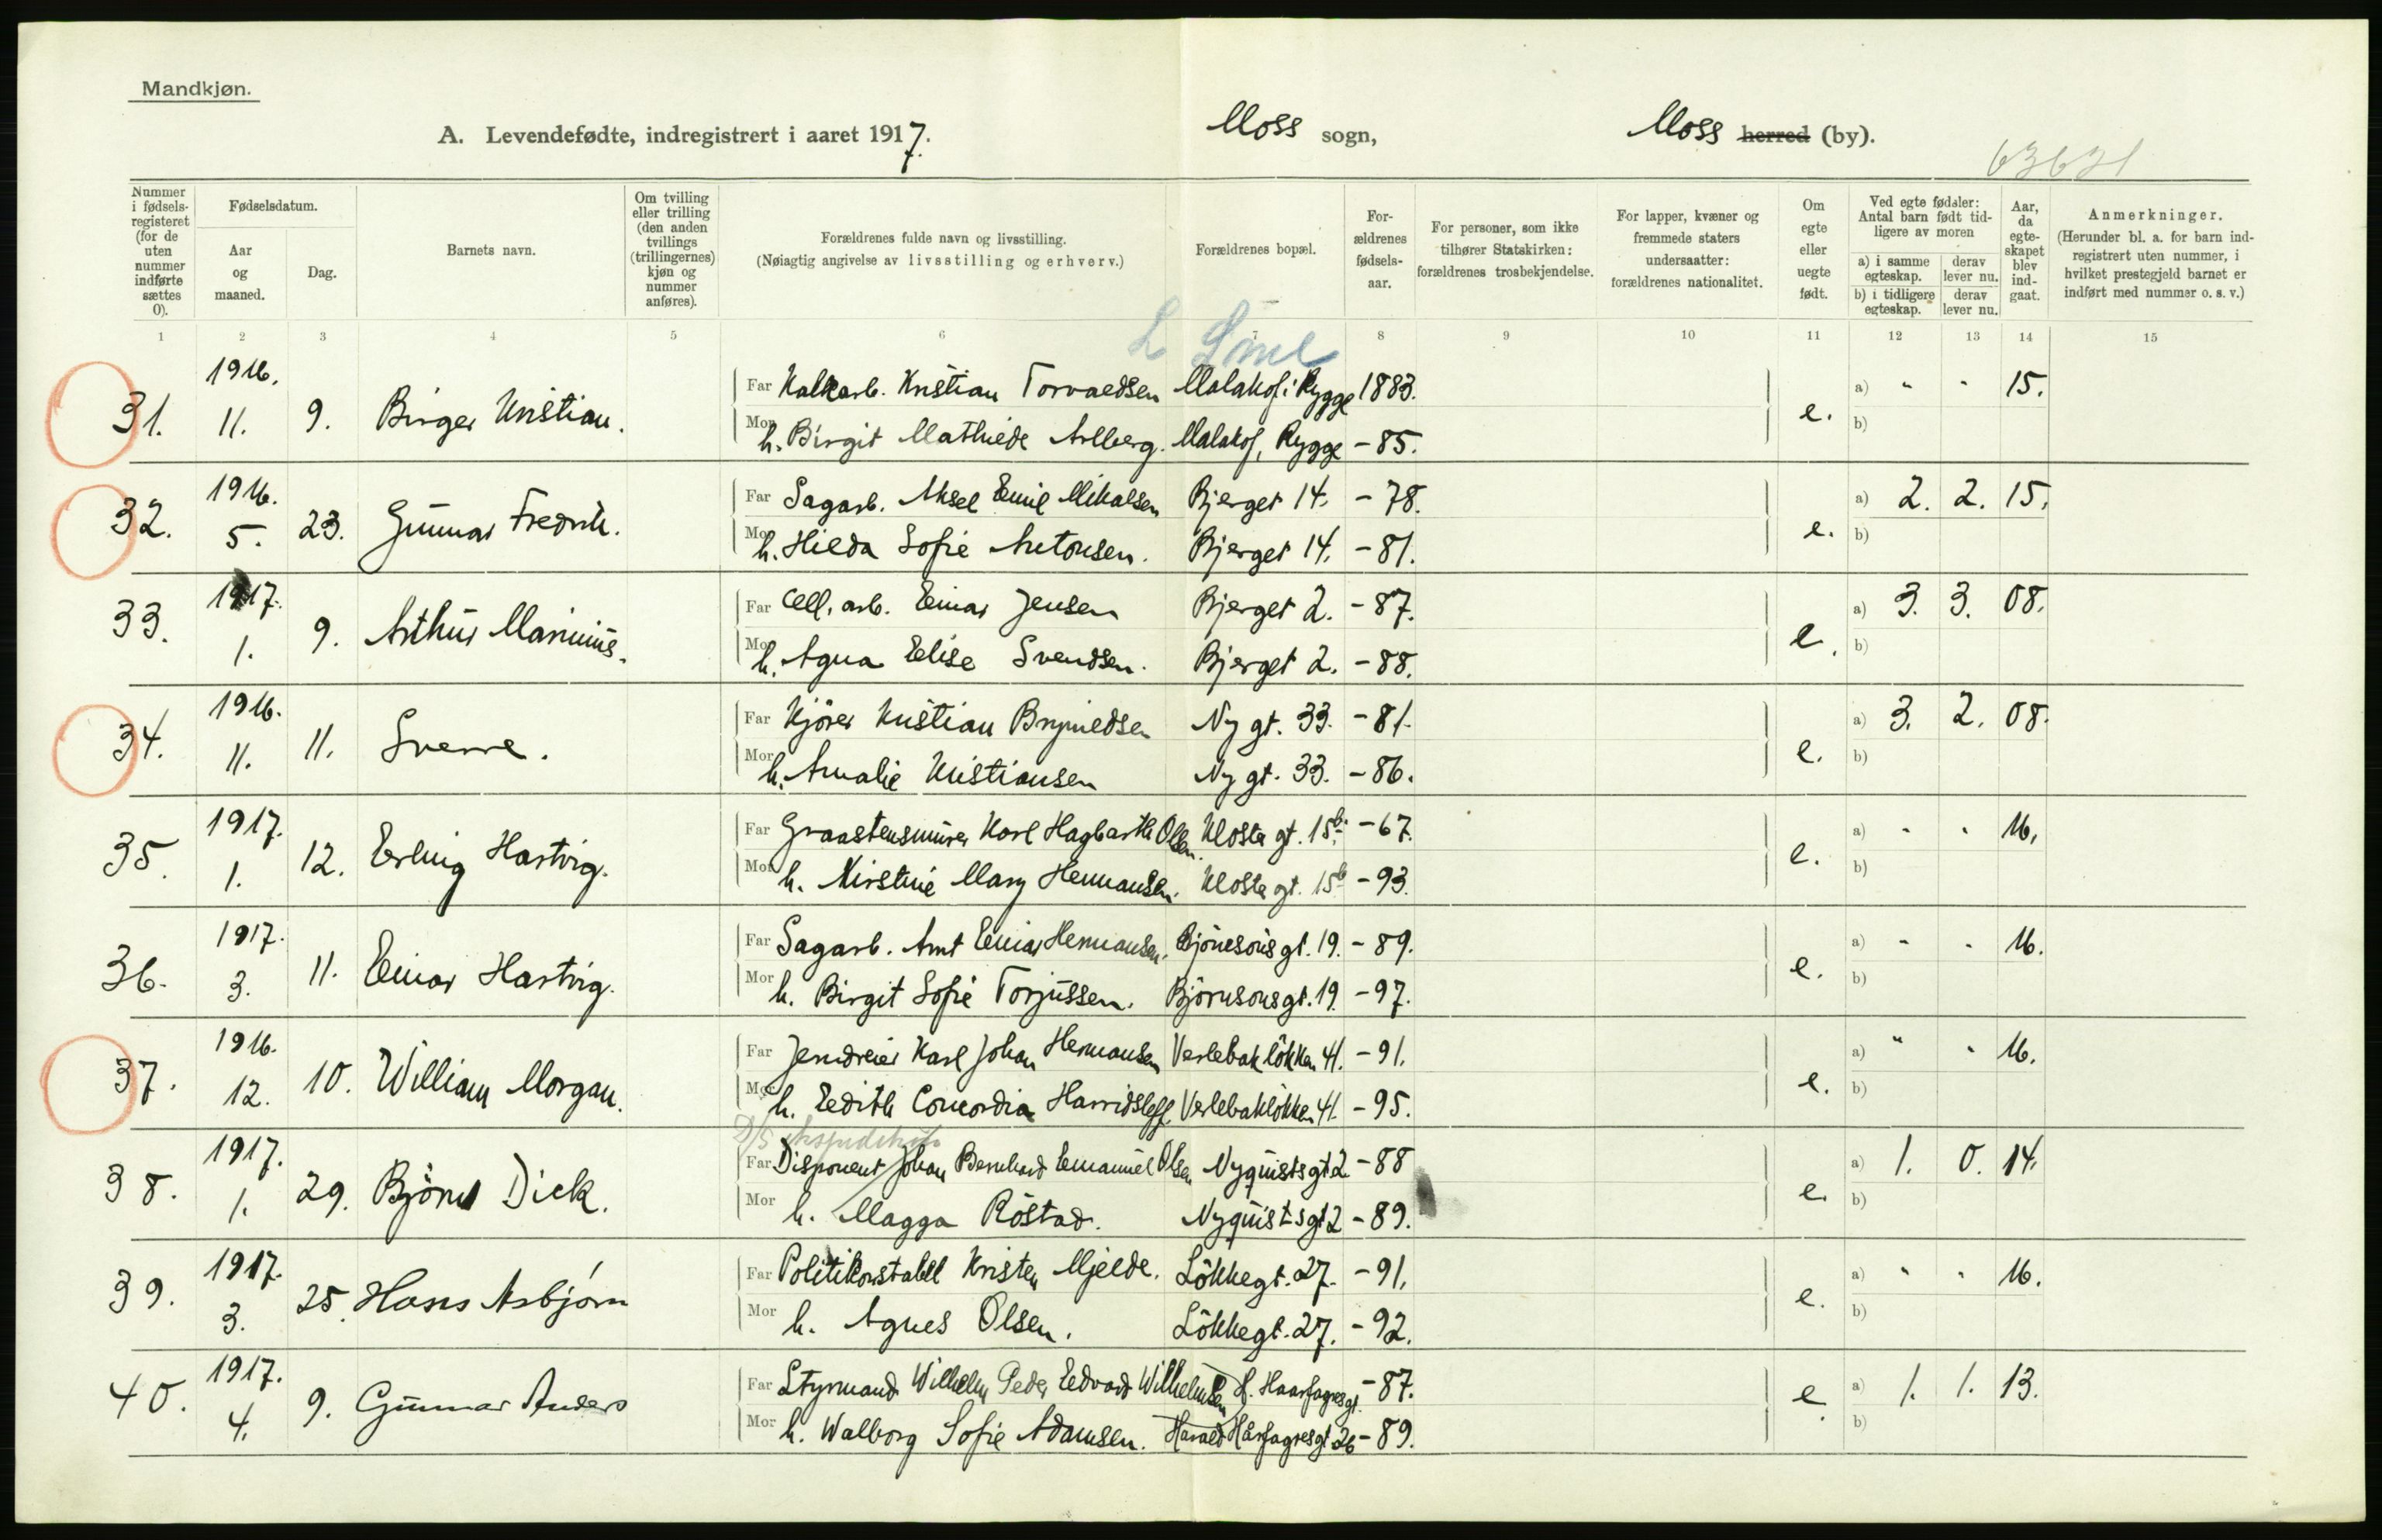 Mandkjøn.
A. Levendefødte, indregistrert i aaret 1917. Moss sogn, Moss herred (by).
63631
Nummer i fødselsregisteret (for de uten nummer indførte sættes 0).
Fødselsdatum.
Aar og maaned.
Dag.
Barnets navn.
Om tvilling eller trilling (den anden tvillings (trillingernes) kjøn og nummer anføres).
Forældrenes fulde navn og livsstilling.
(Nøiagtig angivelse av livsstilling og erhverv.)
Forældrenes bopæl.
Forældrenes fødselsaar.
For personer, som ikke tilhører Statskirken: forældrenes trosbekjendelse.
For lapper, kvæner og fremmede staters undersaatter: forældrenes nationalitet.
Om egte eller uegte født.
Ved egte fødsler: Antal barn født tidligere av moren
a) i samme egteskap. derav lever nu.
b) i tidligere egteskap. derav lever nu.
Aar, da egteskapet blev indgaat.
Anmerkninger.
(Herunder bl. a. for barn indregistrert uten nummer, i hvilket prestegjeld barnet er indført med nummer o. s. v.)
1 2 3 4 5 6 7 8 9 10 11 12 13 14 15
31. 1916. 11. 9. Birger Kristian. e.
Far Kalkarb. Kristian Torvaldsen Malakof i Rygge 1883. a) " " 15.
Mor h. Birgit Mathilde Ahlberg. Malakof, Rygge - 85. b)
32. 1916. 5. 23. Gunnar Fredrik. e.
Far Sagarb. Aksel Emil Mikalsen Bjerget 14. - 78. a) 2. 2. 15.
Mor h. Hilda Sofie Antonsen. Bjerget 14. - 81. b)
33. 1917. 1. 9. Arthur Marinius. e.
Far Cell. arb. Einar Jensen Bjerget 2. - 87. a) 3. 3. 08.
Mor h. Agna Elise Svendsen. Bjerget 2. - 88. b)
34. 1916. 11. 11. Sverre. e.
Far Kjörer Kristian Brynildsen Ny gt. 33. - 81. a) 3. 2. 08.
Mor h. Amalie Kristiansen Ny gt. 33. - 86. b)
35. 1917. 1. 12. Erling Hartvig. e.
Far Graastensmurer Karl Hagbarth Olsen. Kloster gt. 15b. - 67. a) " " 16.
Mor h. Kirstine Mary Hermansen. Kloster gt. 15b - 93. b)
36. 1917. 3. 11. Einar Hartvig. e.
Far Sagarb. Arnt Einar Hermansen. Björnsons gt. 19. - 89. a) " " 16.
Mor h. Birgit Sofie Torjussen. Björnsons gt. 19. - 97. b)
37. 1916. 12. 10. William Morgan. e.
Far Jerndreier Karl Johan Hermansen Verlebaklökken 41. - 91. a) " " 16.
Mor h. Edith Concordia Harridsleff. Verlebaklökken 41. - 95. b)
38. 1917. 1. 29. Björn Dick. e.
Far Disponent Johan Bernhard Emanuel Olsen Nyquistsgt 2 - 88 a) 1. 0. 14.
Mor h. Magga Röstad. Nyquistsgt 2 - 89. b)
39. 1917. 3. 25. Hans Asbjørn e.
Far Politikonstabel Kristen Mjelde. Lökkegt. 27. - 91. a) " " 16.
Mor h. Agnes Olsen. Lökkegt. 27. - 92. b)
40. 1917. 4. 9. Gunnar Anders e.
Far Styrmand Wilhelm Peder Edvard Wilhelmsen H. Haarfagresgt. - 87. a) 1. 1. 13.
Mor h. Walborg Sofie Adamsen. Harald Hårfagresgt 26 - 89. b)